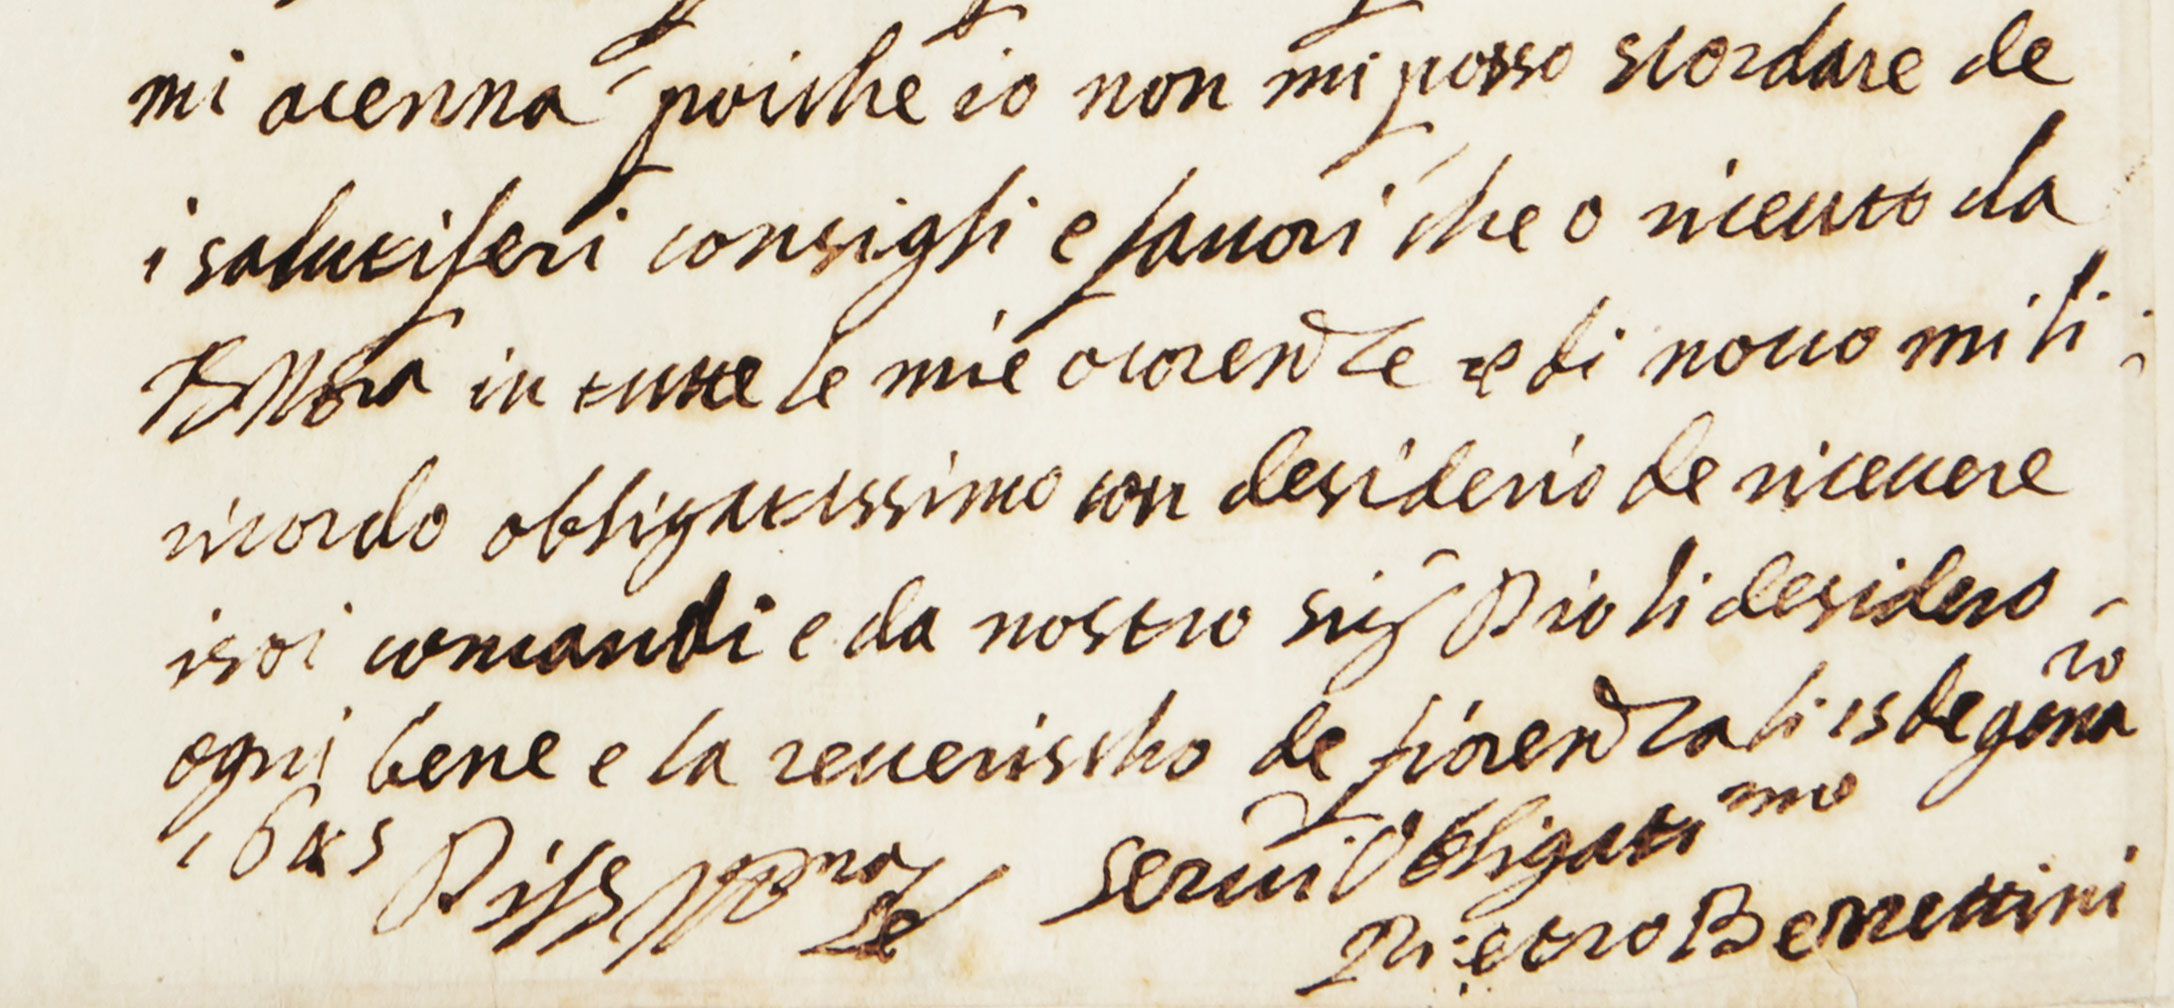 mi acenna poiche io non mi posso scordare de
i salutiferi consigli e fauori che o riceuto da
VS in tutte le mie ocorenze e di nouo mi li
ricordo obligatissimo con desiderio de riceuere
i soi comandi e da nostro sig Dio li desidero
ogni bene e la reuerischo de fiorenza li 15 de genaro
1645
Di VS
Serui Obligatimo
Pietro Berrettini